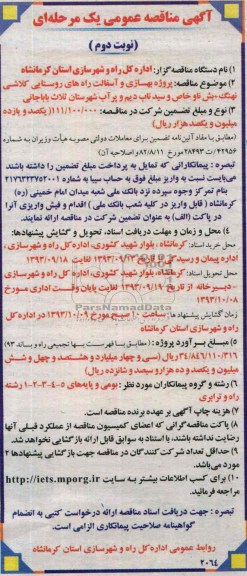 آگهی مناقصه عمومی یک مرحله‌ای
(نوبت دوم)
۱) نام دستگاه مناقصه‌گزار: اداره کل راه و شهرسازی استان کرمانشاه
۲) موضوع مناقصه: پروژه بهسازی و آسفالت راه های روستایی کلاشی
نهنگ،بش ناو خاص و سید ناب دیم و پرآب شهرستان ثلاث باباجانی
۳) نوع و مبلغ تضمین شرکت در مناقصه: ۱۱۱/۰۰۰/۰۰۰( یکصد و یازده
میلیون و یکصد هزار ریال)
(مطابق با مفاد آئین‌نامه تضمین برای معاملات دولتی مصوبه هیأت وزیران به شماره
۴۲۹۵۶/ت ۲۸۴۹۳ مورخ ۸۲/۸/۱۱ و اصلاحیه آن)
تبصره : پیمانکارانی که تمایل به پرداخت مبلغ تضمین را داشته باشند
می‌بایست نسبت به واریز مبلغ فوق به حساب سیبا به شماره ۲۱۷۹۳۳۳۷۵۳۰۰۱
بنام تمرکز وجوه سپرده نزد بانک ملی شعبه میدان امام خمینی (ره)
کرمانشاه ( قابل واریز در کلیه شعب بانک ملی ) اقدام و فیش واریزی آنرا
در پاکت (الف) به عنوان تضمین شرکت در مناقصه ارائه نمایند.
۴) محل و زمان و مهلت دریافت اسناد، تحویل و گشایش پیشنهادها:
محل خرید اسناد: کرمانشاه، بلوار شهید کشوری، اداره کل راه و شهرسازی،
اداره پیمان و رسیدگی از تاریخ ۱۳۹۳/۰۹/۱۳ لغایت ۱۳۹۳/۰۹/۱۸
محل تحویل اسناد: کرمانشاه، بلوار شهید کشوری، اداره کل راه و شهرسازی
- دبیرخانه از تاریخ ۱۳۹۳/۰۹/۱۹ لغایت پایان وقت اداری مورخ
۱۳۹۳/۱۰/۰۸
زمان گشایش پیشنهادها: ساعت ۱۰ صبح مورخ ۱۳۹۳/۱۰/۰۹ در اداره کل
راه و شهرسازی استان کرمانشاه
۵) مبلغ برآورد پروژه: (مطابق با فهرست بها تجمیعی راه و باند ۹۳)
۳۴/۸۴۶/۱۱۰/۳۱۶ ریال (سی و چهار میلیارد و هشتصد و چهل و شش
میلیون و یکصد و ده هزار و سیصد و شانزده ریال)
۶) رشته و گروه پیمانکاران مورد نظر: بومی و پایه‌های ۵-۴-۳-۲-۱ رشته
راه و ترابری
۷) هزینه چاپ آگهی بر عهده برنده مناقصه است.
۸) پاکت مناقصه‌گرانی که اعضای کمیسیون مناقصه از عملکرد قبلی آنها
رضایت نداشته باشند، با استناد به سوابق قابل ارائه بازگشایی نخواهد شد.
۹) حداقل تعداد شرکت کنندگان در مناقصه جهت بازگشایی پیشنهادها ۲
مورد می‌باشد.
۱۰) برای کسب اطلاعات بیشتر به سایت http://iets.mporg.ir
مراجعه فرمائید.
تبصره: جهت دریافت اسناد مناقصه ارائه درخواست کتبی به انضمام
گواهینامه صلاحیت پیمانکاری الزامی است.
روابط عمومی اداره کل راه و شهرسازی استان کرمانشاه
۲۰۶۴